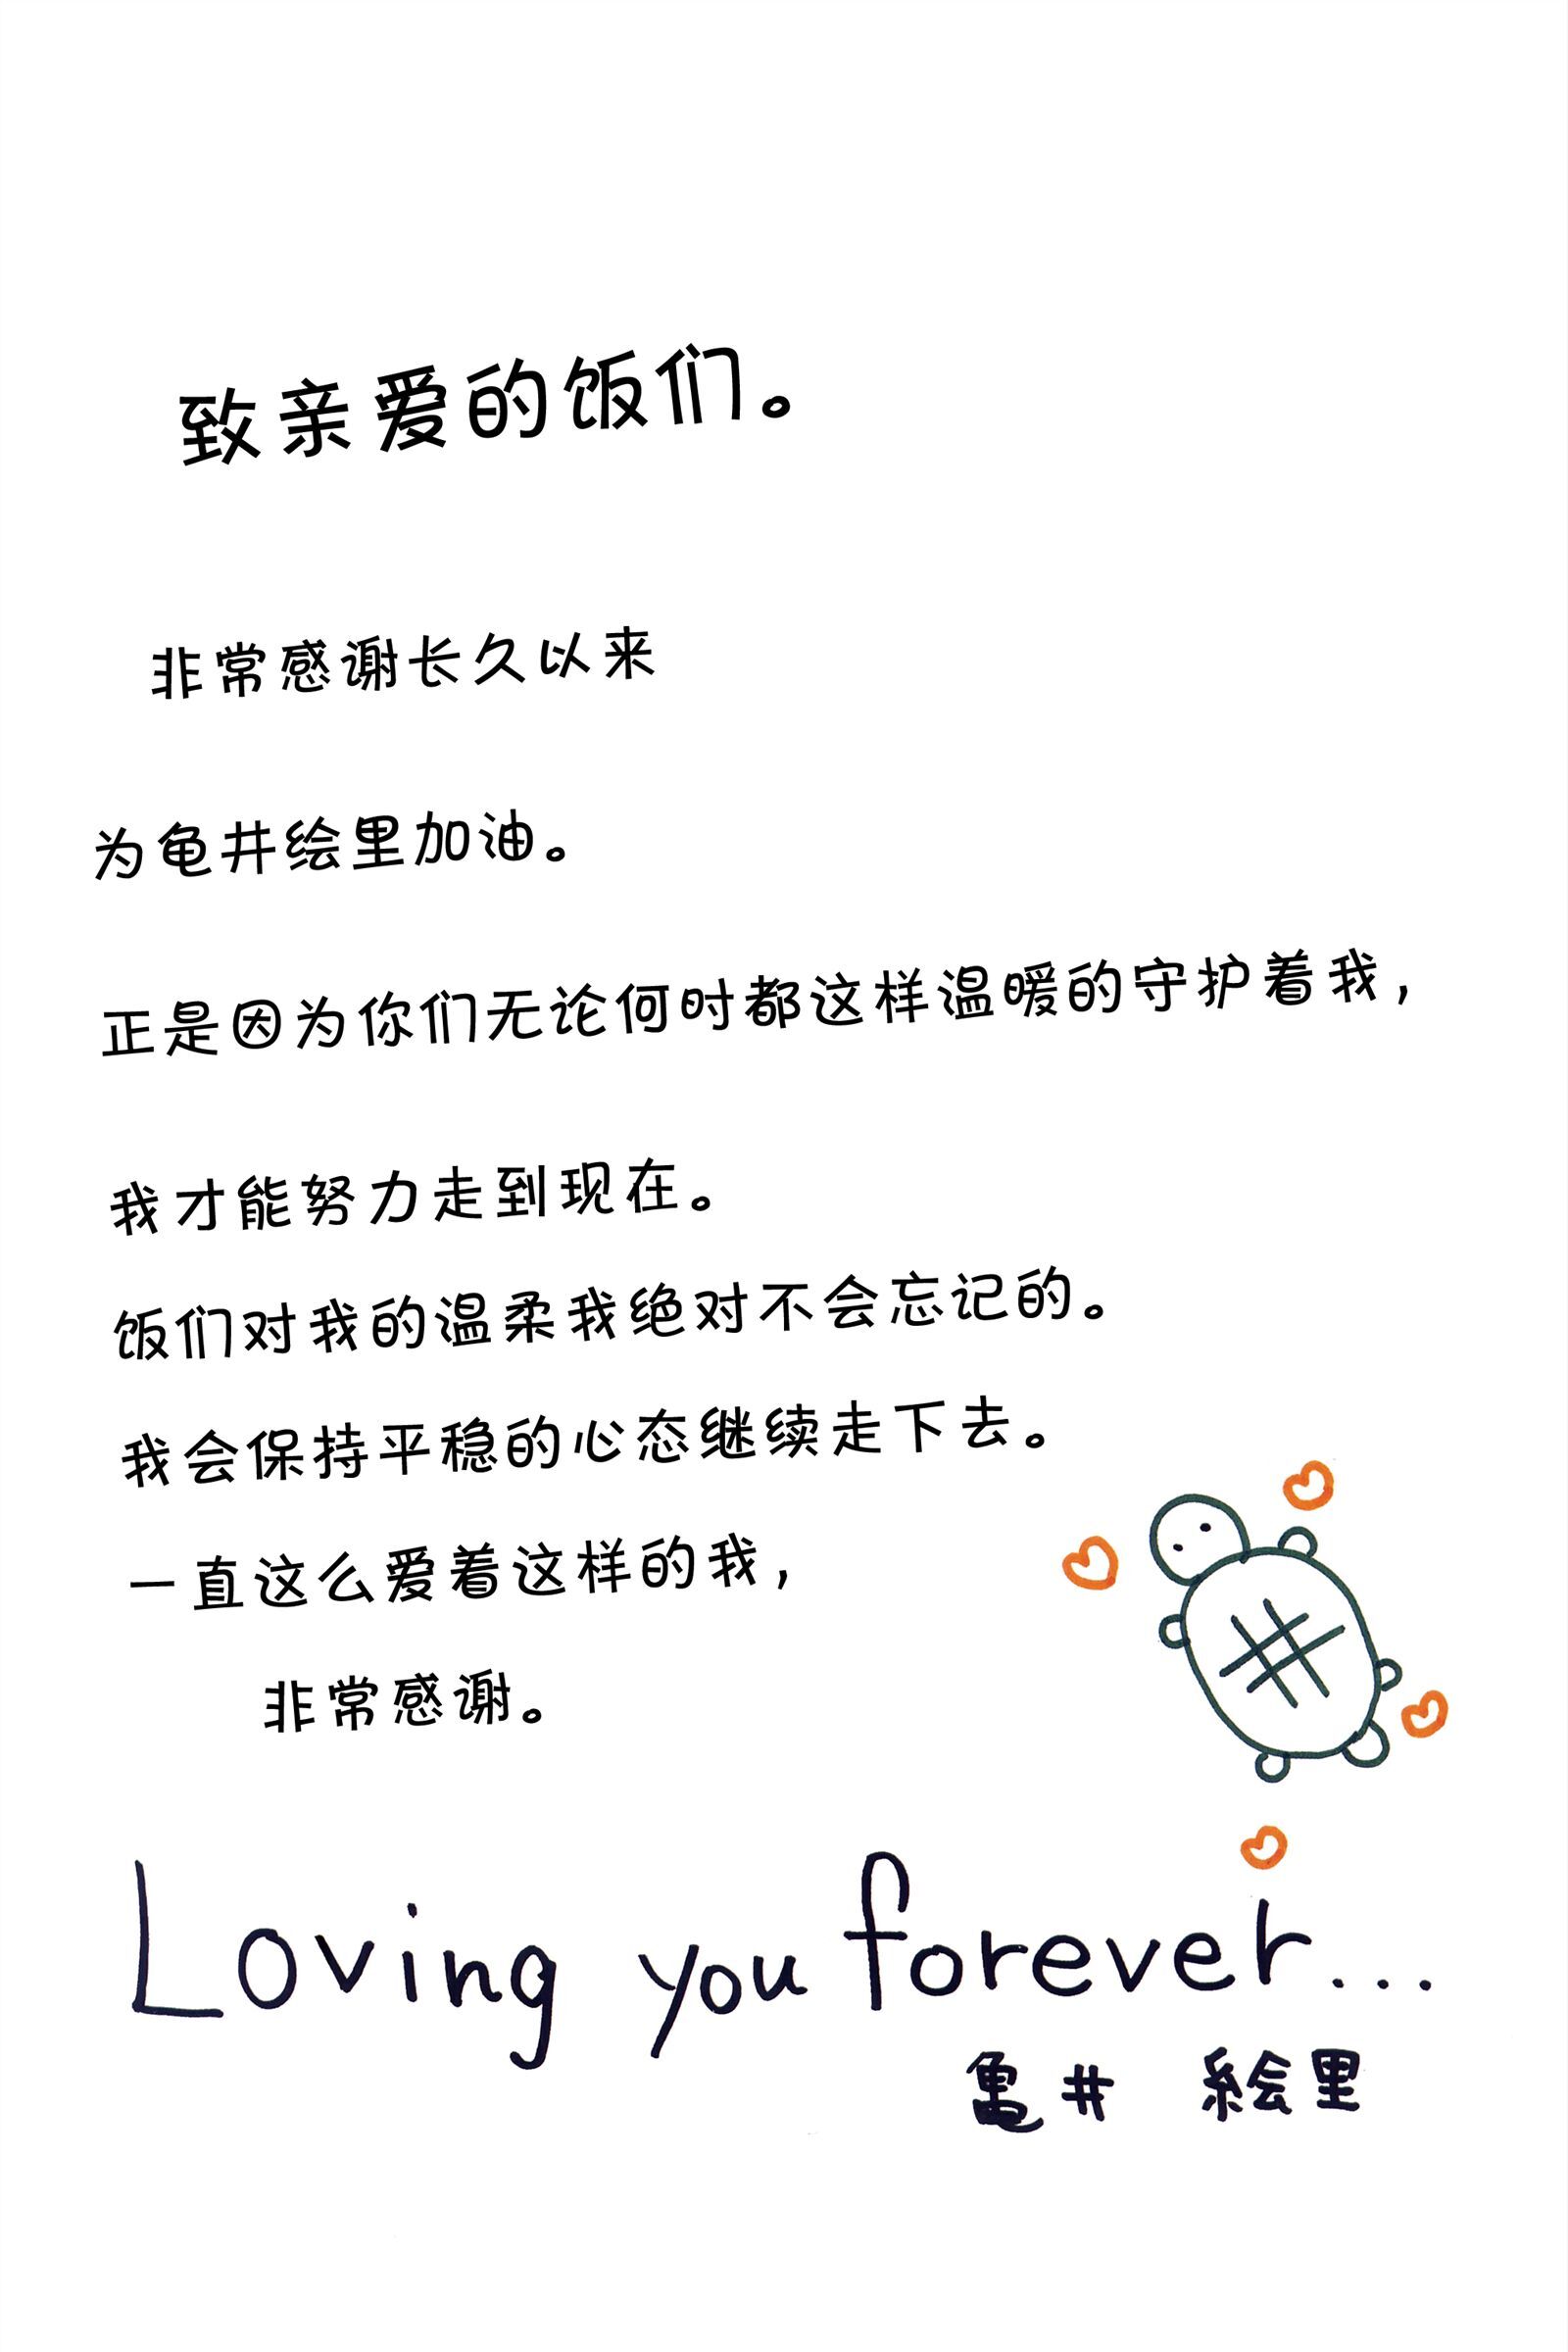 致亲爱的饭们。
非常感谢长久以来
为龟井绘里加油。
正是因为你们无论何时都这样温暖的守护着我，
我才能努力走到现在。
饭们对我的温柔我绝对不会忘记的。
我会保持平稳的心态继续走下去。
一直这么爱着这样的我，
非常感谢。
Loving you forever...
亀井 絵里